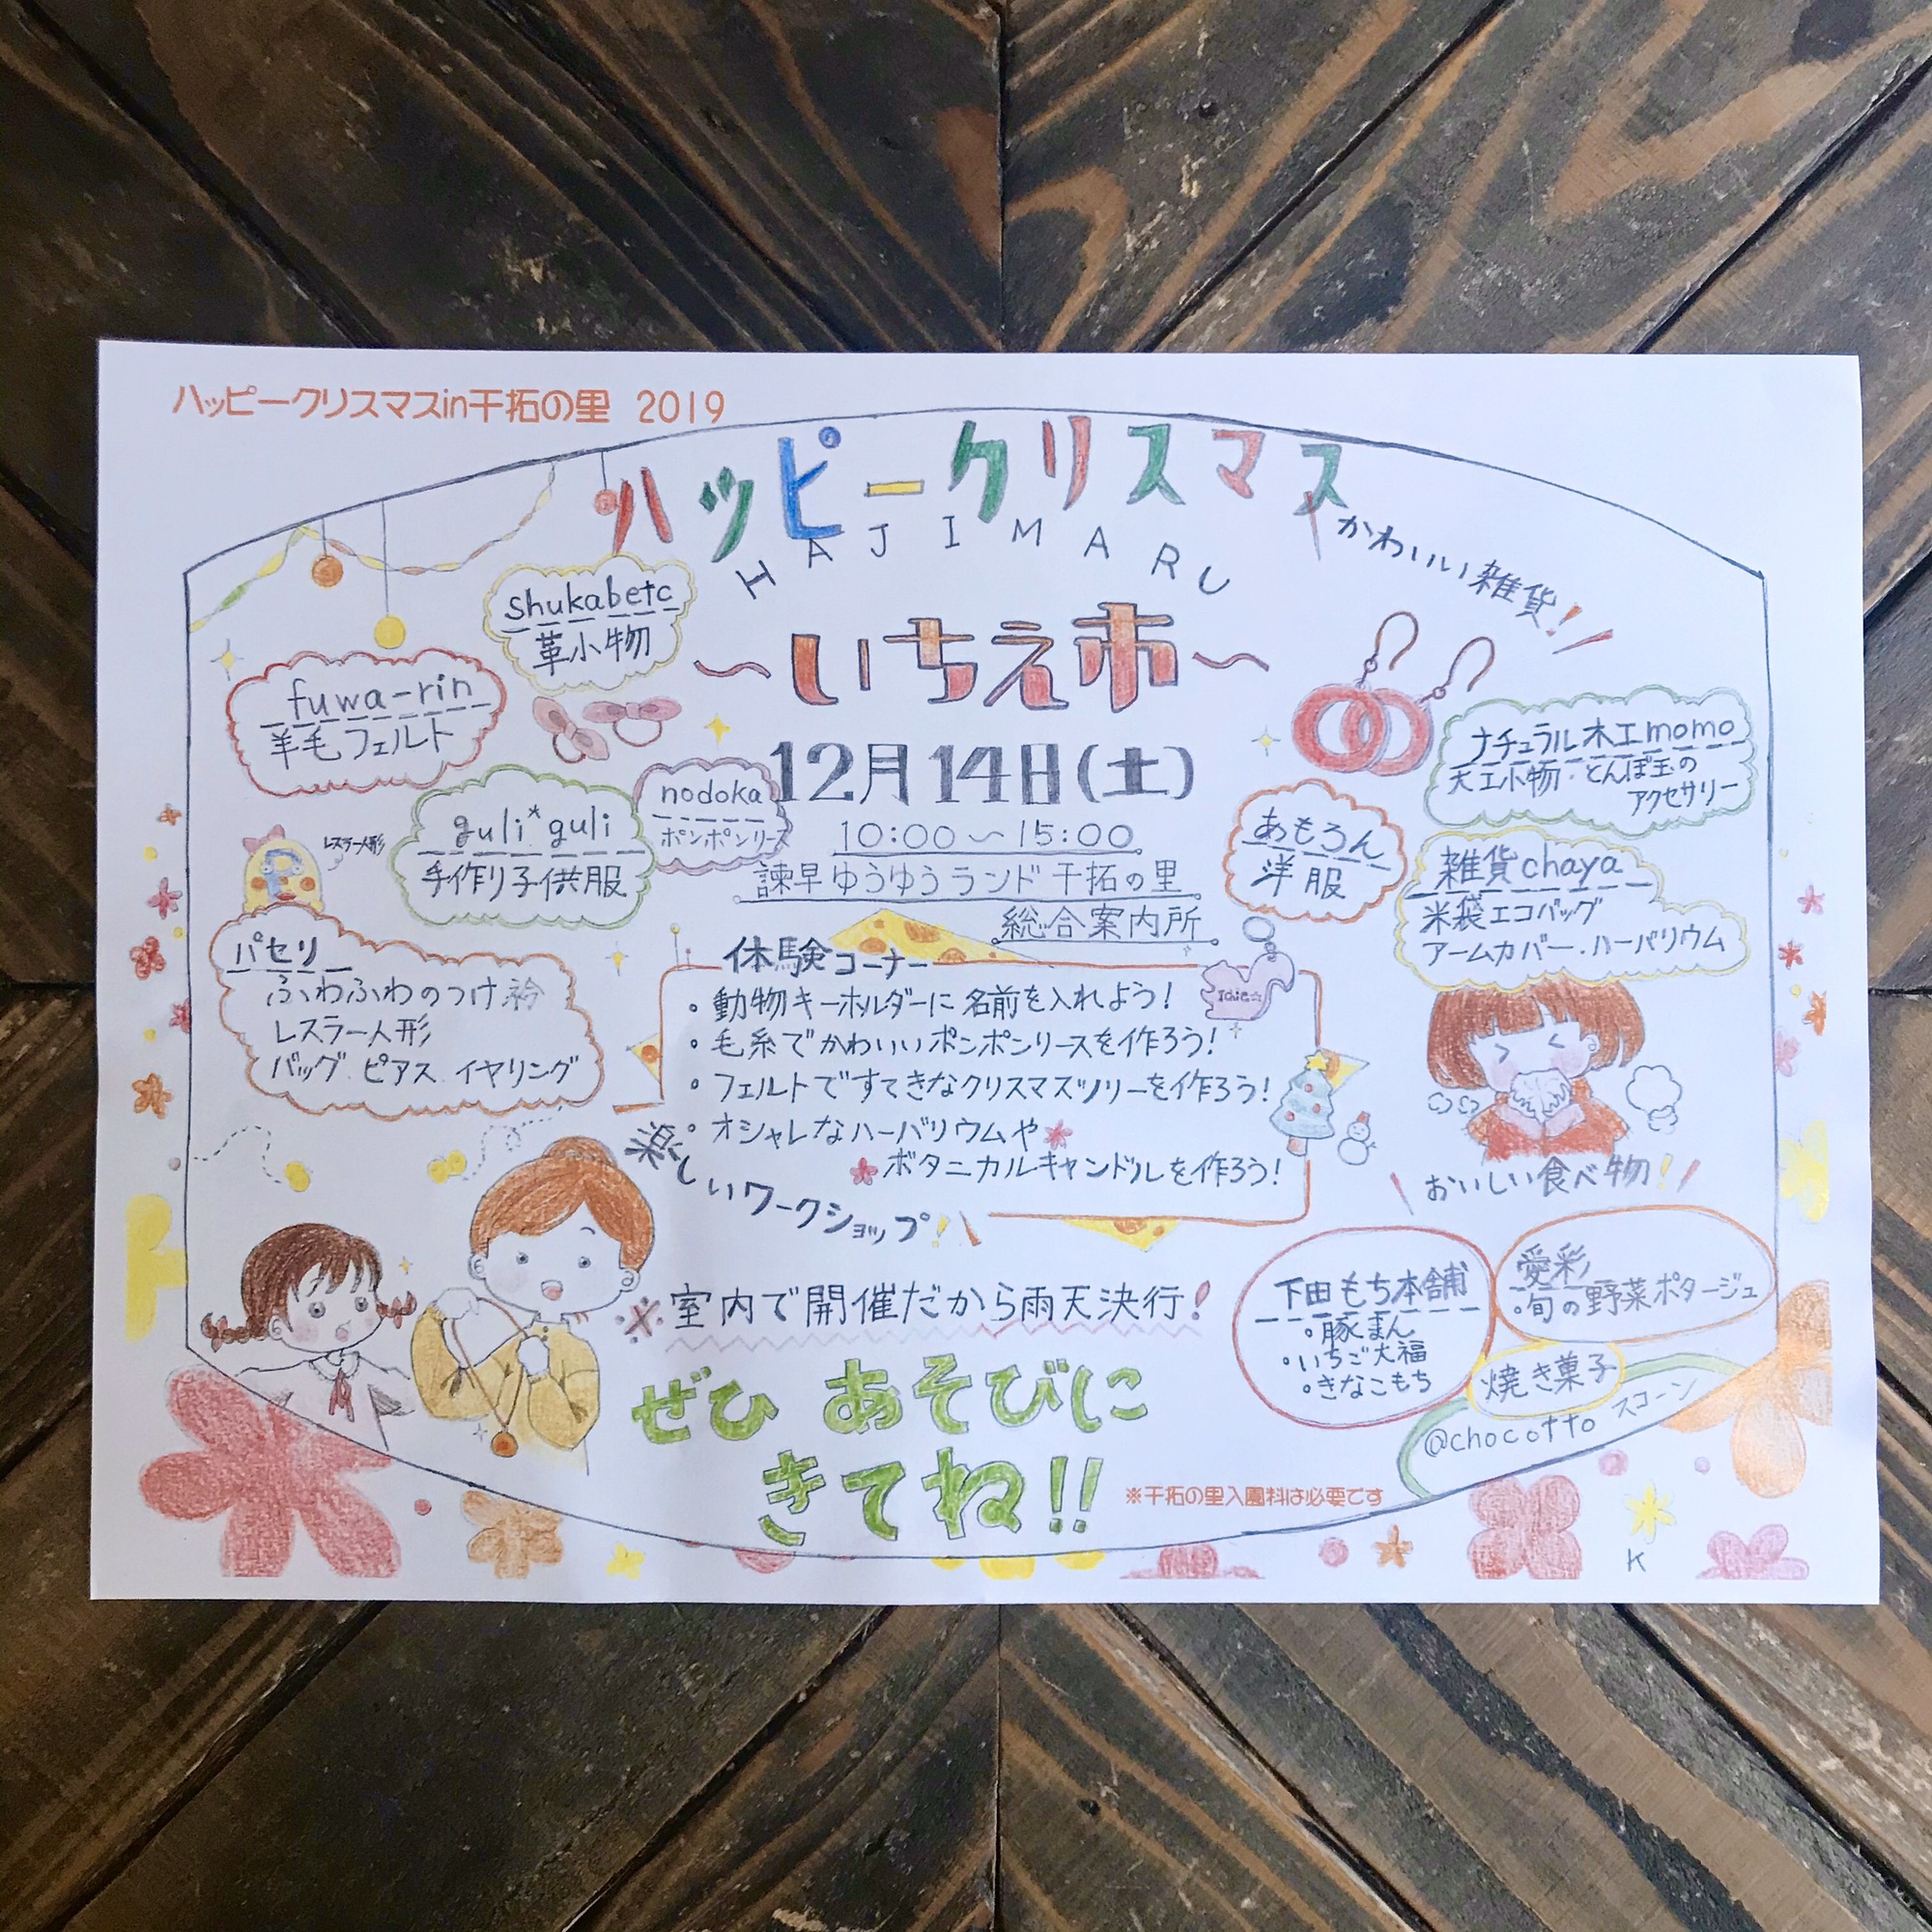 ハッピークリスマスin干拓の里 2019
ハッピークリスマス
HAJIMARU
かわいい雑貨!
〜いちえ市〜
12月14日(土)
10:00〜15:00
諫早ゆうゆうランド干拓の里
総合案内所
shukabetc
革小物
fuwa-rin
羊毛フェルト
guli*guli
手作り子供服
nodoka
ポンポンリース
レスラー人形
パセリ
ふわふわのつけ衿
レスラー人形
バッグ.ピアス.イヤリング
ナチュラル木工momo
大工小物・とんぼ玉の
アクセサリー
あもろん
洋服
雑貨chaya
米袋エコバッグ
アームカバー.ハーバリウム
体験コーナー
・動物キーホルダーに名前を入れよう!
・毛糸でかわいいポンポンリースを作ろう!
・フェルトですてきなクリスマスツリーを作ろう!
・オシャレなハーバリウムや
ボタニカルキャンドルを作ろう!
楽しいワークショップ!
おいしい食べ物!
下田もち本舗
・豚まん
・いちご大福
・きなこもち
愛彩
・旬の野菜ポタージュ
焼き菓子
@chocotto スコーン
※室内で開催だから雨天決行!
ぜひ あそびに
きてね!!
※干拓の里入園料は必要です
K